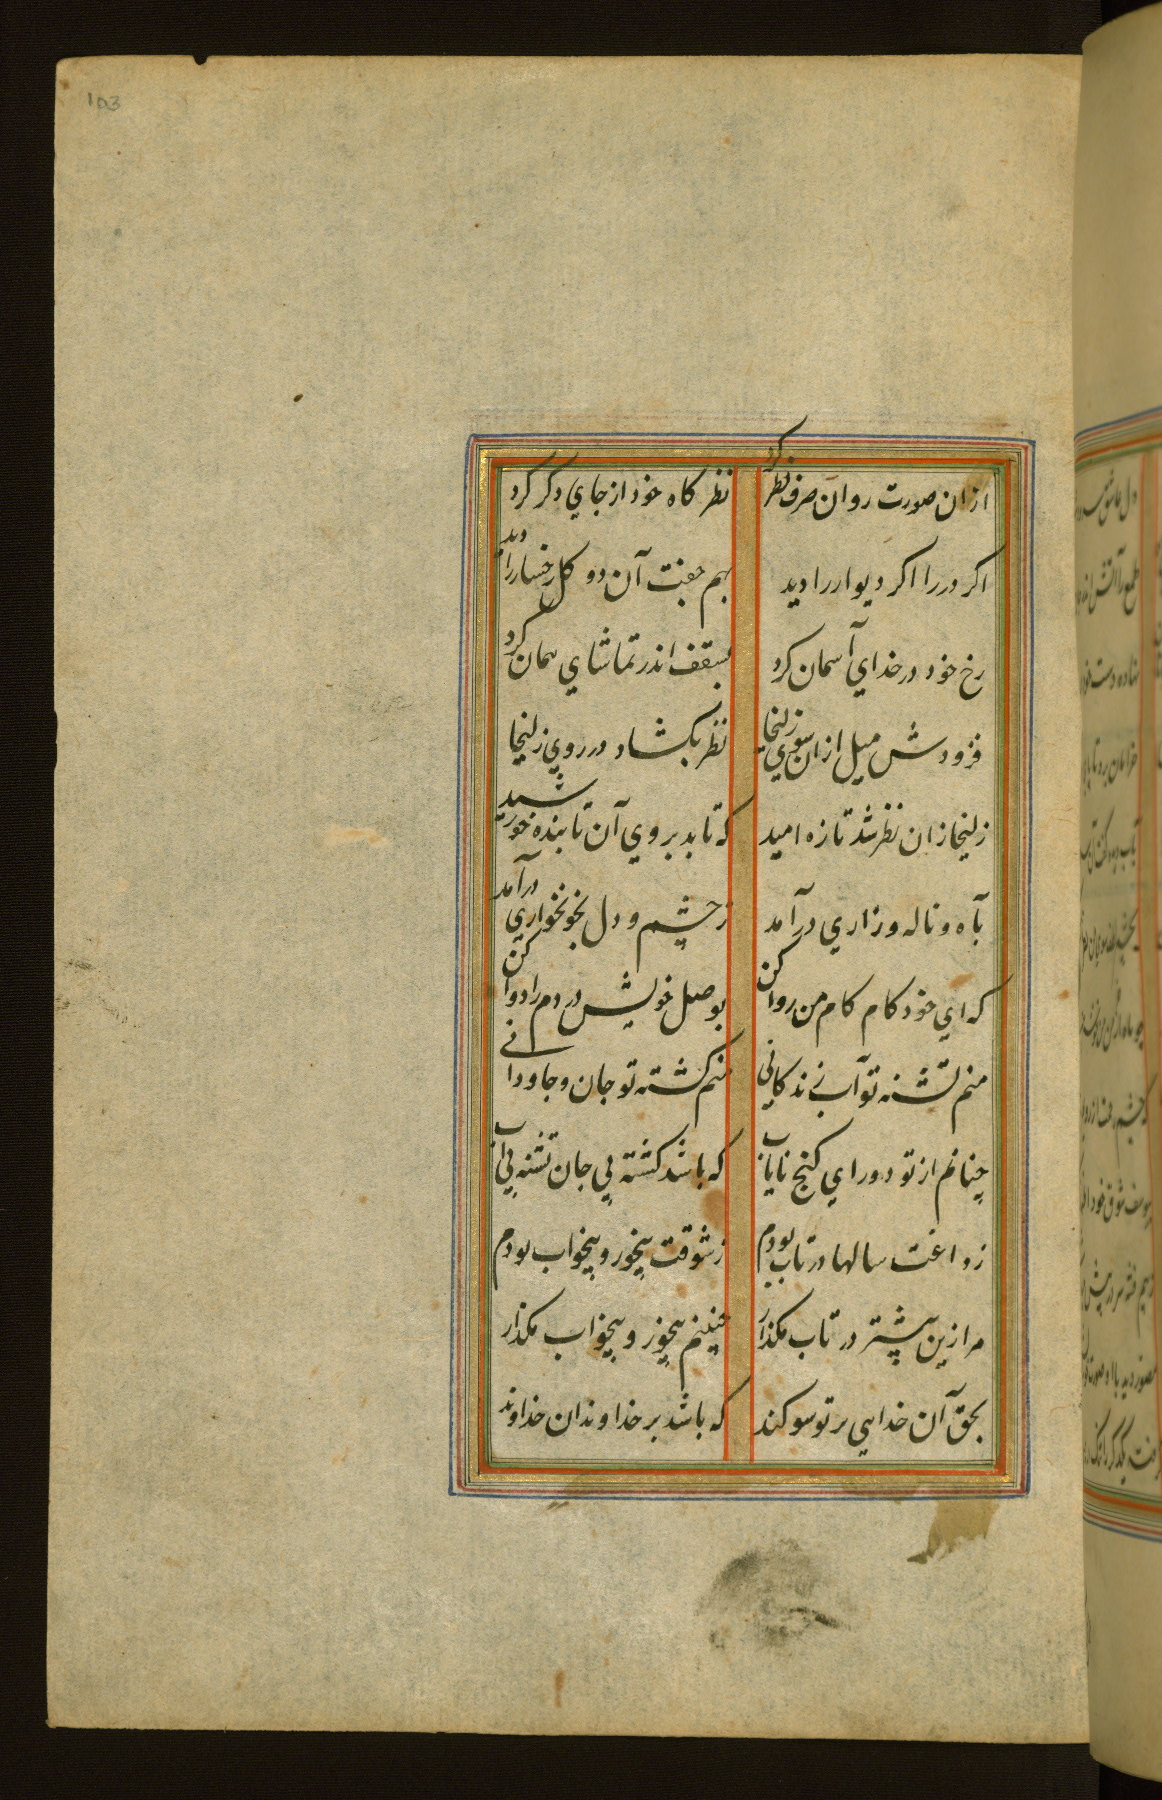 103
ازان صورت روان صرف نظر کرد
نظر کاه خود از جاي دکر کرد
اکر در را اکر ديوار را ديد
بهم جفت آن دو کل رخسار را ديد
رخ خود در خداي آسمان کرد
بسقف اندر تماشاي همان کرد
فزودش ميل ازان سوي زليخا
نظر بکشاد در روي زليخا
زليخا زان نظر شد تازه اميد
که تابد بروي آن تابنده خورشيد
بآه و ناله و زاري درآمد
ز چشم و دل بخونخواري درآمد
که اي خود کام کام من روا کن
بوصل خويش دردم را دوا کن
منم تشنه تو آب زندکاني
منم کشته تو جان و جاوداني
چنانم از تو دور اي کنج ناياب
که باشد کشته بي جان تشنه بي آب
ز داغت سالها در تاب بودم
ز شوقت بيخور و بيخواب بودم
مرا زين بيشتر در تاب مکذار
چنينم بيخور و بيخواب مکذار
بحق آن خدايي بر تو سوکند
که باشد بر خداوندان خداوند